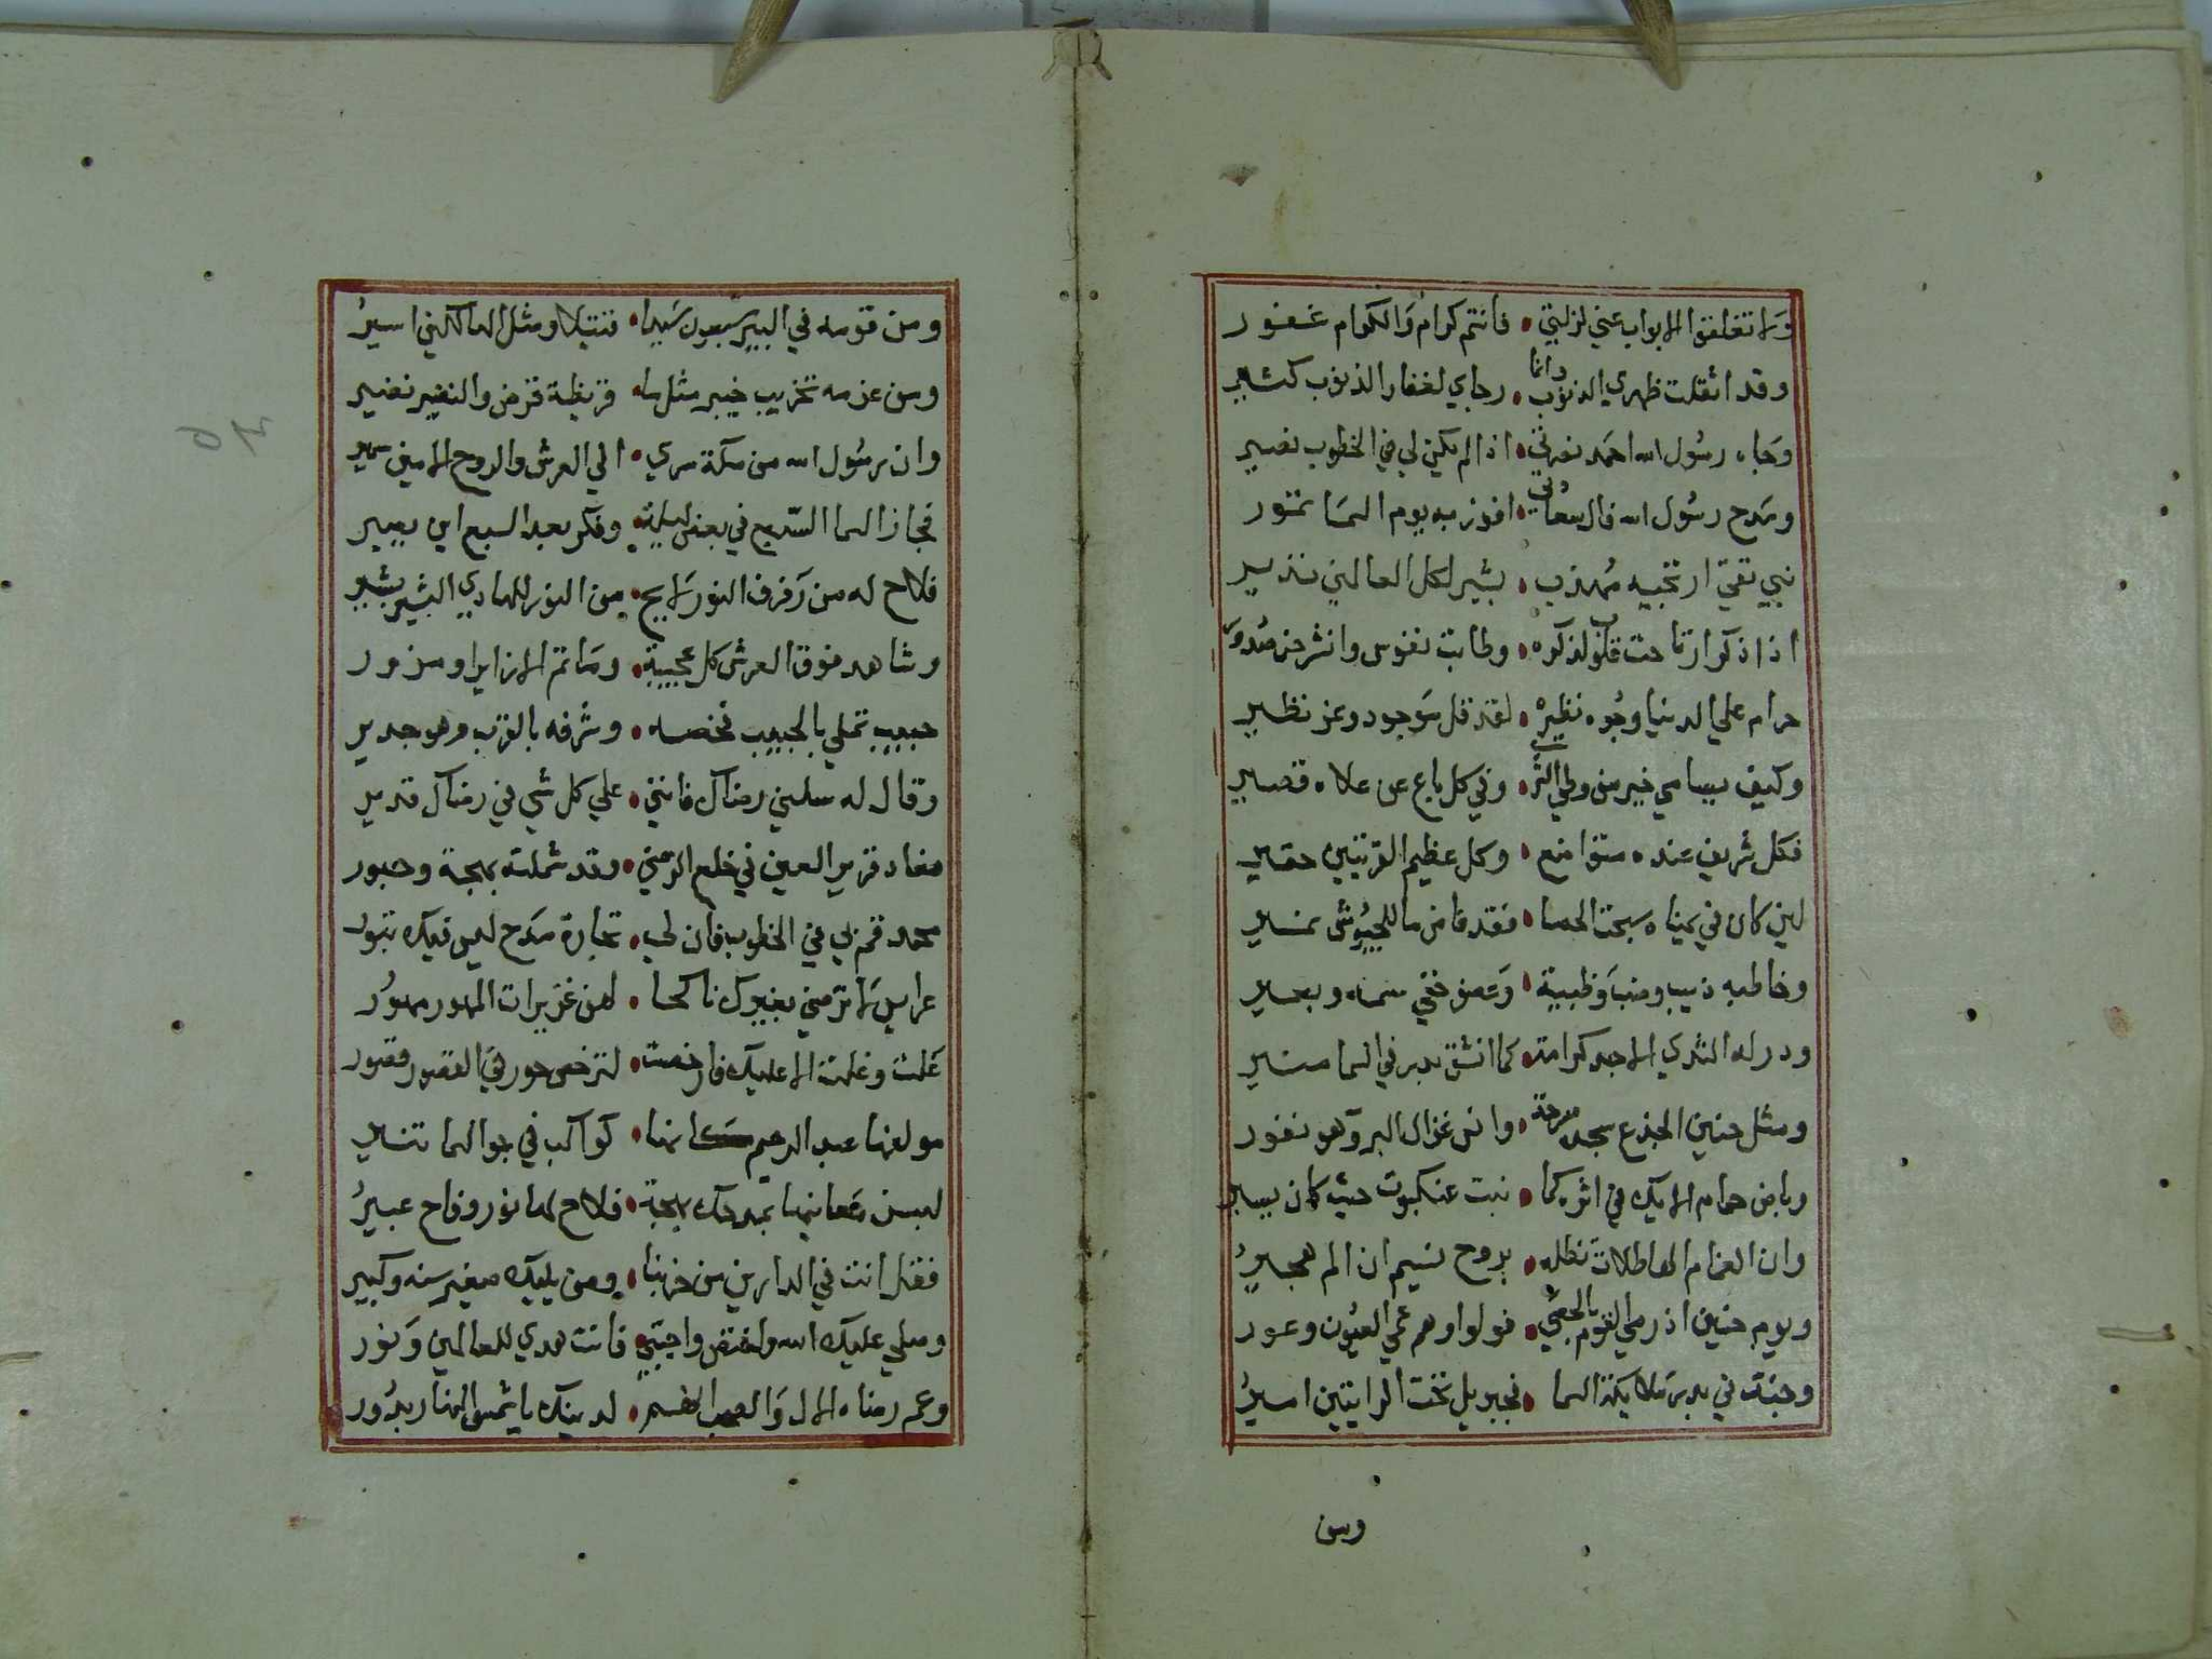 ولا تغلقوا الابواب عني لزلتي • فانتم كرام والكرام غفور
وقد اثقلت ظهري الذنوب وانما • رجاي لغفار الذنوب كثير
وجاه رسول الله احمد نصرتي • اذا لم يكن لي في الخطوب نصير
ومدح رسول الله فال سعادتي • افوز به يوم السما تمور
نبي تقي اريحيه مهذب • بشير لكل العالمين نذير
اذا ذكر ارتاحت قلوب لذكره • وطابت نفوس وانشرحن صدور
حرام علي الدنيا وجوه نظيره • لقد قل موجود وعز نظير
وكيف يسامي خير من وطي الثري • وفي كل باع عن علاه قصير
فكل شريف عنده متواضع • وكل عظيم القريتين حقير
لين كان في يمناه سبحت الحصا • فقد فاض ما للجيوش نمير
وخاطبه ذيب وضب وظبية • وعضو خفي سمه وبعير
ودر له الثدي الاجد كرامة • كما انشق بدر في السما منير
ومثل حنين الجذع سجدة سرحة • وانس غزال البر وهو نفور
وباض حمام الايك في اثره كما • نبت عنكبوت حيث كان يسير
وان الغمام الهاطلات تظله • بروح نسيم ان الم هجير
ويوم حنين اذ رمي القوم بالحصي • فولوا وهم عمي العيون وعور
وجند في بدر ملايكة السما • فجبريل تحت الرايتين امير
ومن
ومن قومه في البير سبعون سيدا • قتيلا ومثل الهالكين اسير
ومن عزمه تخريب خيبر مثل ما • قريظة قرض والنضير نضير
وان رسول الله من مكة سري • الي العرش والروح الامين سمير
فجاز السما السبع في بعض ليلة • وفكر بعد السبع اين يصير
فلاح له من رفرف النور لايح • من النور للهادي البشير بشير
وشاهد فوق العرش كل عجيبة • وما تم الا زايرا ومزور
حبيب تملي بالحبيب فخصه • وشرفه بالقرب وهو جدير
وقال له سلني رضاك فانني • علي كل شي في رضاك قدير
فعاد قرير العين في خلع الرضي • وقد شملته بهجة وحبور
محمد قم بي في الخطوب فان لي • تجارة مدح ليس فيك تبور
عرايس لا ترضي بغيرك ناكحا • لهن غزيرات المهور مهور
غلت وغلت الا عليك فارخصت • لترخص حور في القصور قصور
مولفها عبد الرحيم كانها • كواكب في جو السما تنير
لبسن معانيها بمدحك بهجة • فلاح لها نور وفاح عبير
فقل انت في الدارين من حزبنا • ومن يليك صغير سنه وكبير
وصلي عليك الله واختص واجتبي • فانت هدي للعالمين ونور
وعم رضاه الال والصحب انهم • لدينك يا شمس النهار بدور